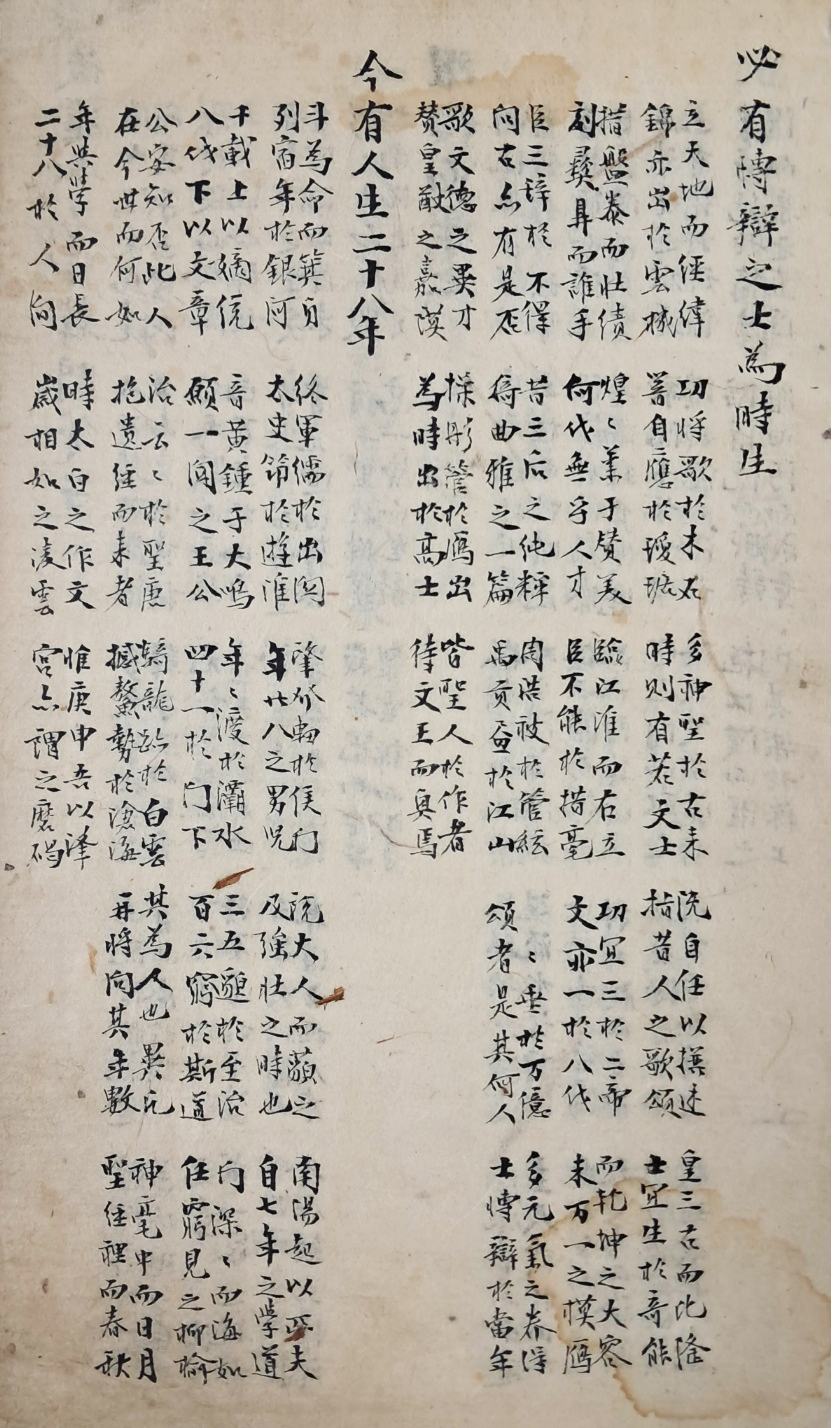 必有博辯之士為時生
立天地而經緯 功將歌於未石 多神聖於古來 洗自任以撰述 皇三古而比隆
錦亦出於雲機 自應於璦琚 時則有若文士 指昔人之歌頌 士宜生於奇能
措盤泰而壯績 煌〻業于贊美 臨江淮而右立 功宜三於二帝 而乾坤之大容
刻彛鼎而誰手 何代無乎人才 臣不能於措毫 文亦一於八代 未万一之模寫
臣三辞於不得 昔三后之純粹 周浩被於管絃 〻垂於万億 多元氣之春浮
问古亦有是否 雅之一篇 禹貢益於江山 頌者是其何人 士博辯於當年
歌文德之異才 操彤管於鴈出 皆聖人於作者
贊皇猷之嘉謨 為時出於高士 待文王而奥焉
今有人生二十八年
斗為命而箕身 終軍繻於出関 肇於侯门 說大人而藐之 南陽起以匹夫
列宿年於銀河 太史節於遊淮 年廿八之男児 及强壮之時也 自七年之學道
千載上以嫡統 音黃鍾于大鳴 年〻渡於灞水 三五題於至治 门深〻而海如
八代下以文章 願一聞之王公 四十一於门下 百六窮於斯道 任窮見之揶揄
公安知否此人 治云〻於聖唐 騎龍跡於白雲 其為人也異凡 神毫中而日月
在今世而何如 抱遺經而耒者 撼鰲勢於滄海 再將向其年數 聖經裡而春秋
年與學而日長 時太白之作文 惟庚申吾以降
二十八於人间 歲相如之凌雲 宮亦謂之磨碣